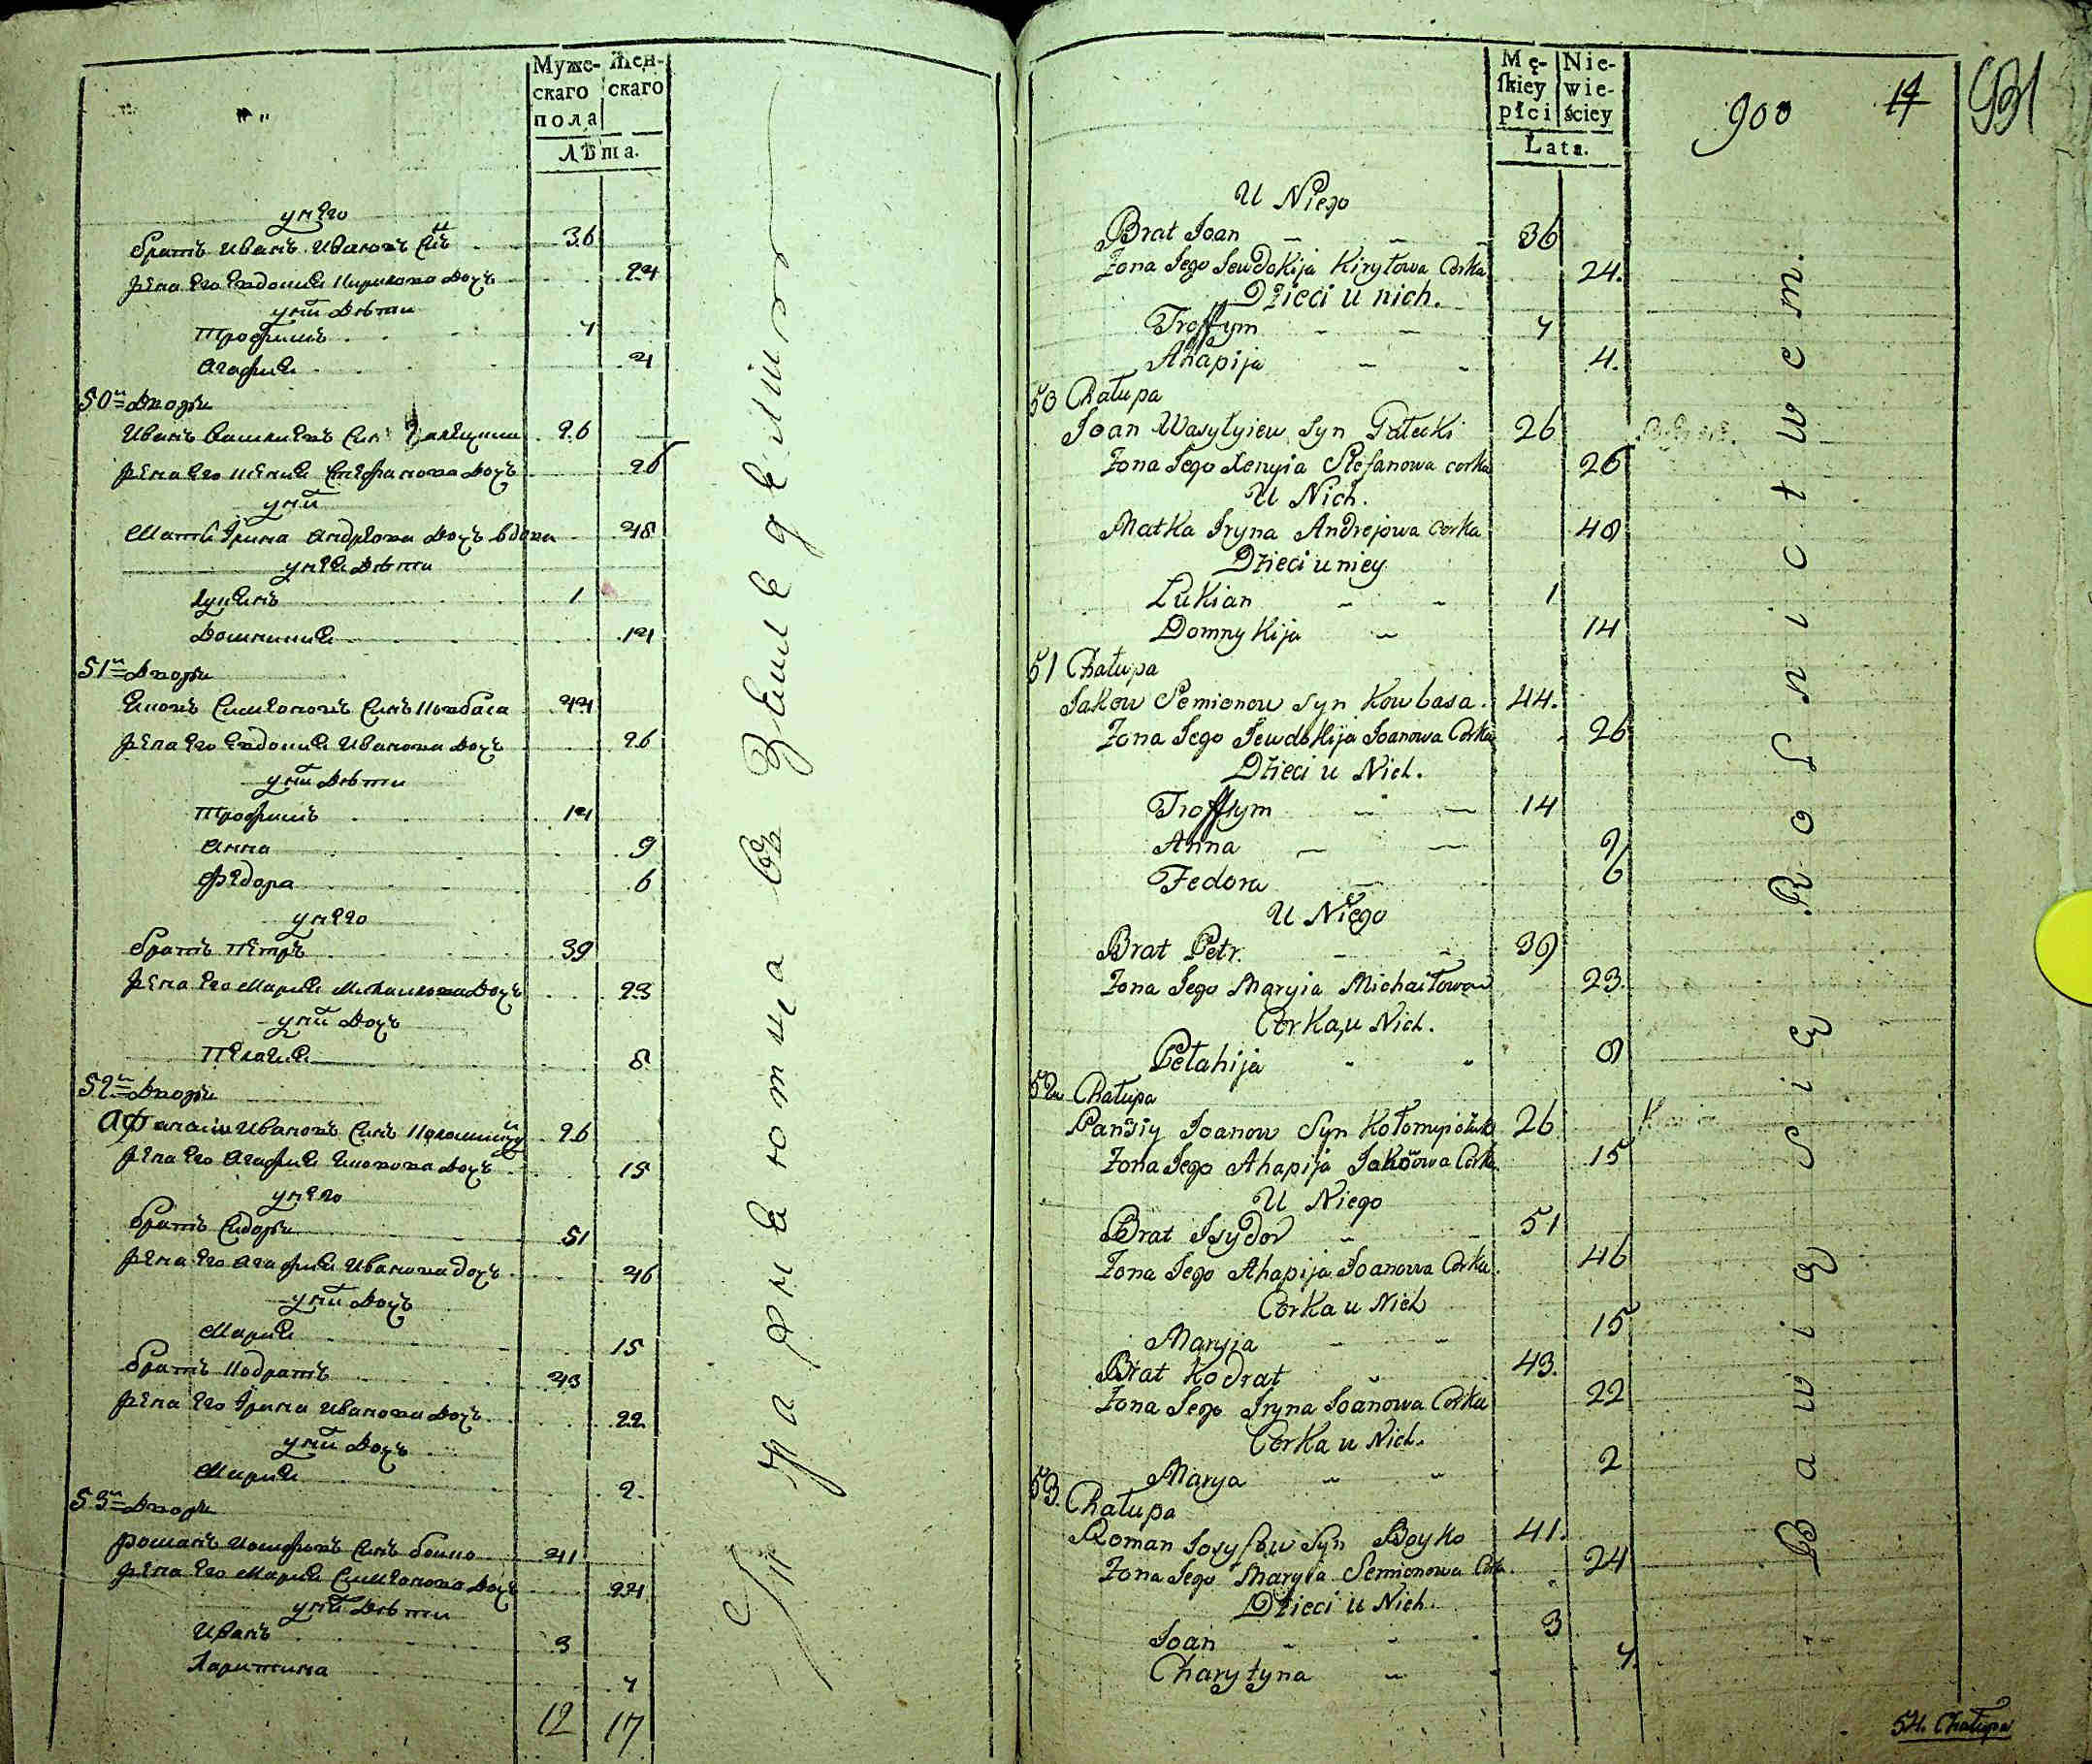 Муже-
скаго
пола
Жен-
скаго
Лѣта.
у него
братъ Иванъ Ивановъ снъ 36
жена его Евдокия Кирилова дочь 24
у них дѣти
Трофимъ 7
Агафия 4
50й Дворъ
Иванъ Василиевъ снъ 26
жена его Ксения Стефанова дочь 26
у них
Мать Ірина Андреова дочь вдова 48
у неи дѣти
Лукиянъ 1
Домникия 14
51й Дворъ
Яковъ Симеоновъ снъ Ковбаса 44
жена его Евдокия Иванова дочь 26
у них дѣти
Трофимъ 14
Анна 9
Федора 6
у него
братъ Петръ 39
жена его Мария Михаилова дочь 23
у них дочь
Пелагия 8
52й Дворъ
Афанасiи Ивановъ снъ 26
жена его Агафия Яковова дочь 15
у него
братъ Сидоръ 51
жена его Агафия Иванова дочь 46
у них дочь
Мария 15
братъ Кодратъ 43
жена его Ірина Иванова дочь 22
у них дочь
Мария 2.
53й Дворъ
Романъ Иосифовъ снъ Боико 41
жена его Мария Симеонова дочь 24
у них дѣти
Иванъ 3
Харитина 7
12 17
Упражняютца въ Земледелiи
Mę-
ſkiey
płci
Nie-
wie-
ściey
Lata.
900 14 931
U Niego
Brat Joan 36
Zona Jego Jewdokija Kiryłowa Corka 24.
Dzieci u nich.
Troffym 7
Ahapija 4.
50 Chałupa
Joan Wasylyiew Syn Gałecki 26
Zona Jego Xenyia Stefanowa corka 26
U Nich.
Matka Iryna Andrejowa Corka 48
Dzieci u niey
Lukian 1
Domnykija 14
51 Chałupa
Jakow Semionow Syn Kowbasa. 44.
Zona Jego Jewdokija Joanowa Corka 26
Dzieci u Nich.
Troffym 14
Anna 9
Fedora 6
U Niego
Brat Petr. 39
Zona Jego Maryia Michaiłowa 23.
Corka, u Nich.
Pełahija 8
52 Chałupa
Panasiy Joanow Syn 26
Zona Jego Ahapija Jakowowa Corka. 15
U Niego
Brat Isydor 51
Zona Jego Ahapija Joanowa Corka. 46
Corka u Nich
Maryja 15
Brat Kodrat 43.
Zona Jego Iryna Joanowa Corka 22
Corka u Nich.
Marya 2
53. Chałupa
Roman Josyfow Syn Boyko 41.
Zona Jego Maryia Semionowa Corka. 24
Dzieci u Nich.
Joan 3
Charytyna 7.
Bawią Się Rolnictwem.
54. Chałupa